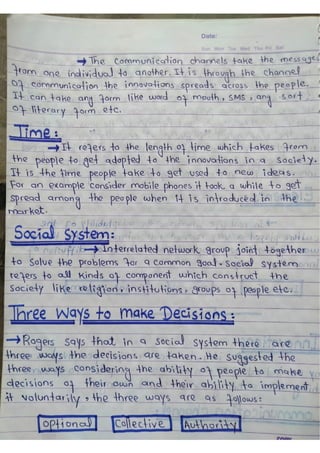 Date:
Sun Mon Tue Wed Thu Fri Sat
→ The Communication channels take the messages
from one individual to another. It is through the channel
of communication the innovations spreads across the people.
It can take any form like word of mouth, SMS, any sort
of literary form etc.
Time:
→ It refers to the length of time which takes from
the people to get adopted to the innovations in a society.
It is the time people take to get used to new ideas.
For an example consider mobile phones it took a while to get
spread among the people when it is introduced in the
market.
Social System:
→ Interrelated network group joint together
to solve the problems for a common goal. Social system
refers to all kinds of component which construct the
society like religion, institutions, groups of people etc.
Three Ways to make Decisions:
→ Rogers says that in a social system there are
three ways the decisions are taken. He suggested the
three ways considering the ability of people to make
decisions of their own and their ability to implement
it voluntarily, the three ways are as follows:
Optional Collective Authority